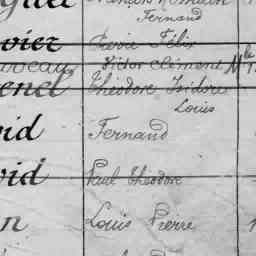 Fernand
vier Pierre Félix
Victor Clément
Théodore Isidore
Louis
id Fernand
vid Paul Théodore
n Louis Pierre